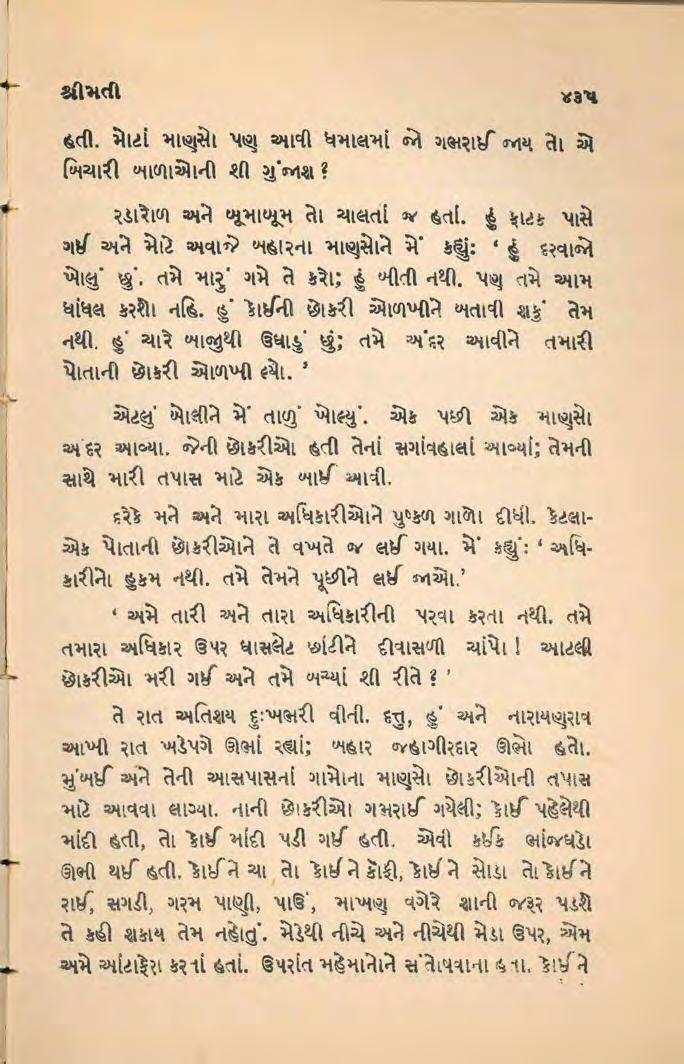 શ્રીમતી ૪૩૫
હતી. મોટાં માણસો પણ આવી ધમાલમાં જો ગભરાઈ જાય તો એ
બિચારી બાળાઓની શી ગુંજાશ ?
રડારોળ અને બૂમાબૂમ તો ચાલતાં જ હતાં. હું ફાટક પાસે
ગઈ અને મોટે અવાજે બહારના માણસોને મેં કહ્યું: ‘ હું દરવાજો
ખોલું છું. તમે મારું ગમે તે કરો; હું બીતી નથી. પણ તમે આમ
ધાંધલ કરશો નહિ. હું કોઈની છોકરી ઓળખીને બતાવી શકું તેમ
નથી. હું ચારે બાજુથી ઉઘાડું છું; તમે અંદર આવીને તમારી
પોતાની છોકરી ઓળખી લ્યો. ’
એટલું બોલીને મેં તાળું ખોલ્યું. એક પછી એક માણસો
અંદર આવ્યા. જેની છોકરીઓ હતી તેનાં સગાંવહાલાં આવ્યાં; તેમની
સાથે મારી તપાસ માટે એક બાઈ આવી.
દરેકે મને અને મારા અધિકારીઓને પુષ્કળ ગાળો દીધી. કેટલા-
એક પોતાની છોકરીઓને તે વખતે જ લઈ ગયા. મેં કહ્યું: ‘ અધિ-
કારીનો હુકમ નથી. તમે તેમને પૂછીને લઈ જાઓ.’
‘ અમે તારી અને તારા અધિકારીની પરવા કરતા નથી. તમે
તમારા અધિકાર ઉપર ઘાસલેટ છાંટીને દીવાસળી ચાંપો ! આટલી
છોકરીઓ મરી ગઈ અને તમે બચ્યાં શી રીતે ? ’
તે રાત અતિશય દુઃખભરી વીતી. દત્તુ, હું અને નારાયણરાવ
આખી રાત ખડેપગે ઊભાં રહ્યાં; બહાર જહાગીરદાર ઊભો હતો.
મુંબઈ અને તેની આસપાસનાં ગામોના માણસો છોકરીઓની તપાસ
માટે આવવા લાગ્યા. નાની છોકરીઓ ગભરાઈ ગયેલી; કોઈ પહેલેથી
માંદી હતી, તો કોઈ માંદી પડી ગઈ હતી. એવી કઈક ભાંજઘડો
ઊભી થઈ હતી. કોઈને ચા તો કોઈને કૉફી, કોઈને સોડા તો કોઈને
રાઈ, સગડી, ગરમ પાણી, પાઉં, માખણ વગેરે શાની જરૂર પડશે
તે કહી શકાય તેમ નહોતું. મેડેથી નીચે અને નીચેથી મેડા ઉપર, એમ
અમે આંટાફેરા કરતાં હતાં. ઉપરાંત મહેમાનોને સંતોષવાના હતા. કોઈને